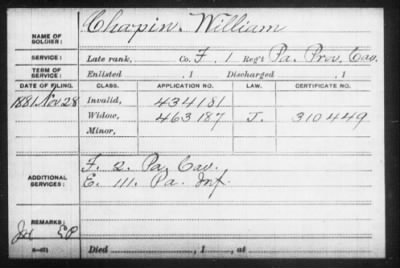 NAME OF SOLDIER: Chapin, William
SERVICE: Late rank, Co. F. 1 Reg't Pa. Prov. Cav.
TERM OF SERVICE: Enlisted , 1 Discharged , 1
DATE OF FILING. CLASS. APPLICATION NO. LAW. CERTIFICATE NO.
1881 Nov 28 Invalid, 434181
Widow, 463187 J. 310449
Minor,
ADDITIONAL SERVICES: F. 2. Pa Cav.
E. 111. Pa. Inf.
REMARKS:
Died , 1 , at